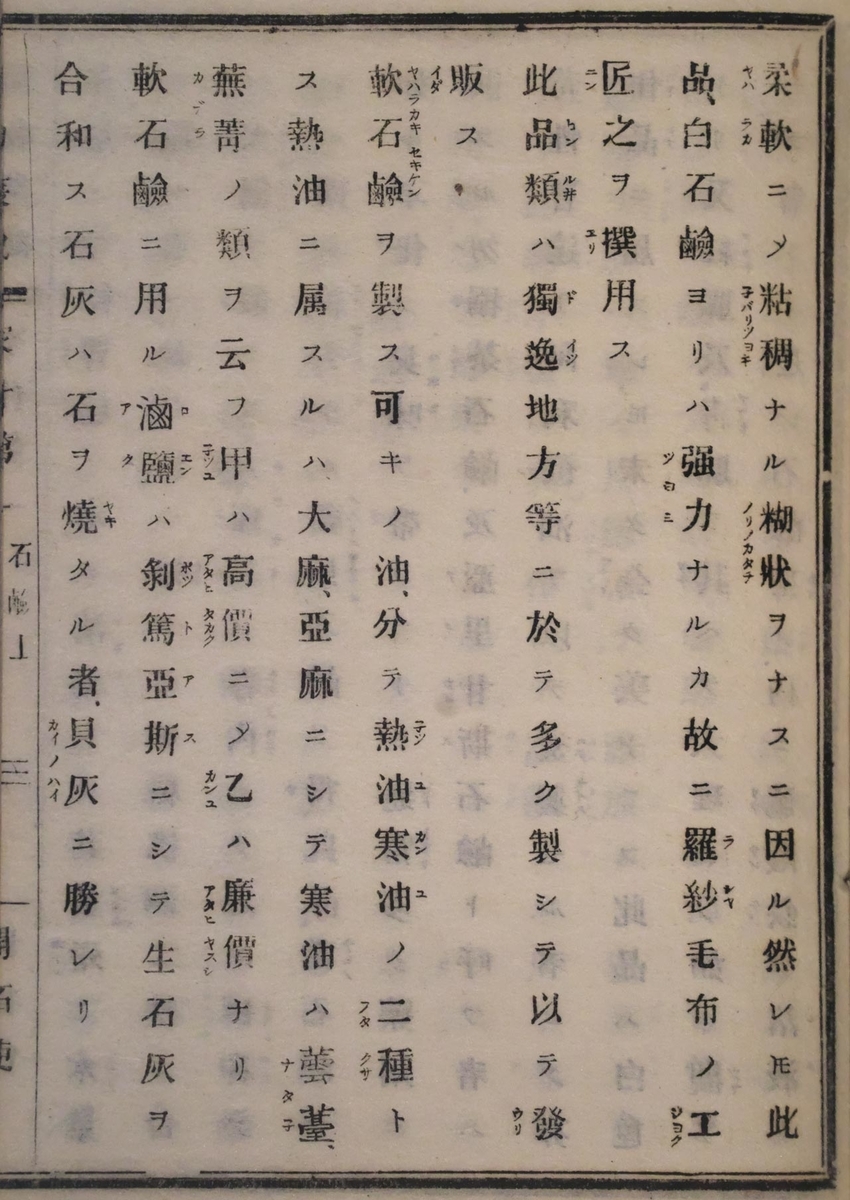 柔軟ニメ粘稠ナル糊狀ヲナスニ因ル然レ𪜈此
品、白石鹼ヨリハ强力ナルカ故ニ羅紗毛布ノ工
匠之ヲ撰用ス
此品類ハ獨逸地方等ニ於テ多ク製シテ以テ發
販ス
軟石鹼ヲ製ス可キノ油、分テ熱油寒油ノ二種ト
ス熱油ニ属スルハ大麻、亞麻ニシテ寒油ハ蕓薹、
蕪菁ノ類ヲ云フ甲ハ高價ニメ乙ハ廉價ナリ
軟石鹼ニ用ル滷鹽ハ剝篤亞斯ニシテ生石灰ヲ
合和ス石灰ハ石ヲ燒タル者、貝灰ニ勝レリ
石鹼